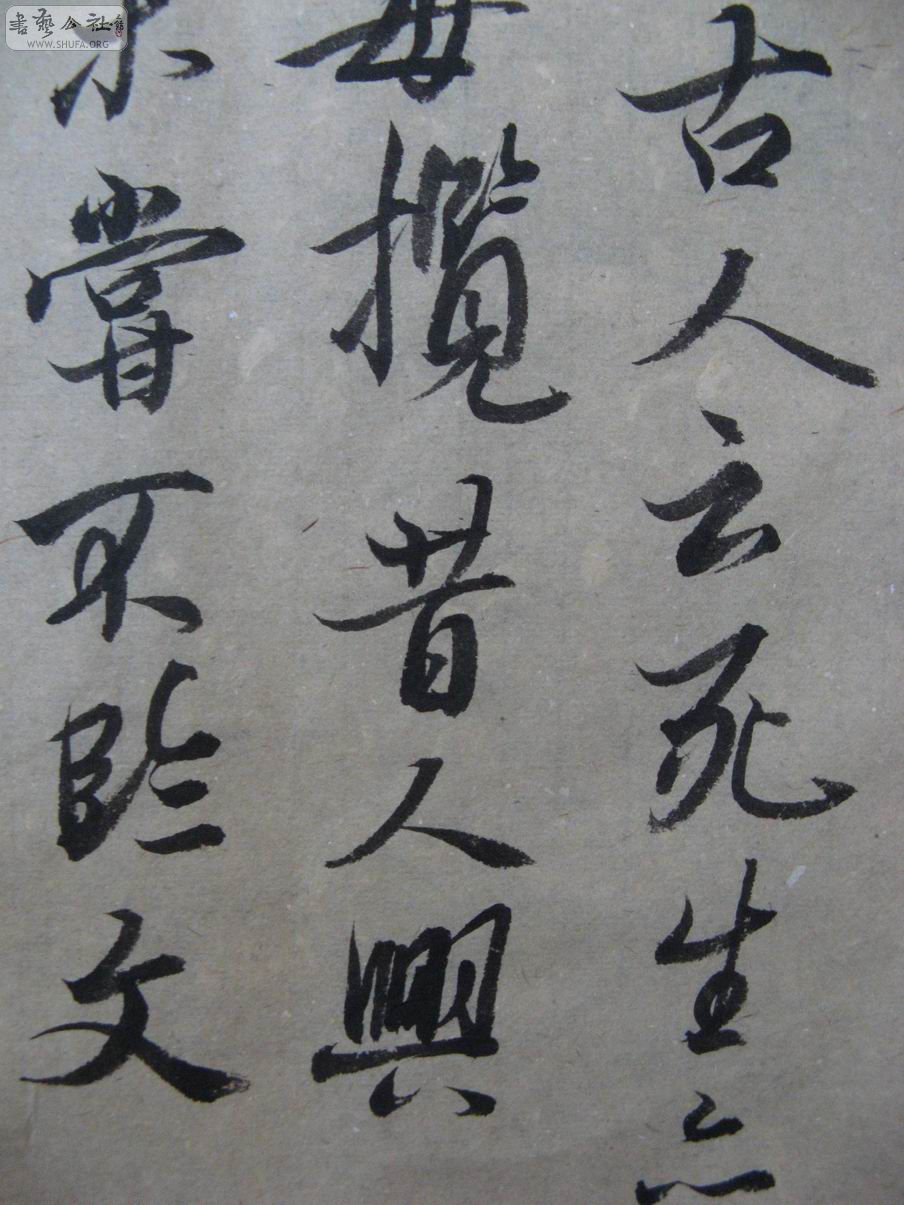 古人云死生亦
每攬昔人興
未嘗不臨文
書藝公社
WWW.SHUFA.ORG